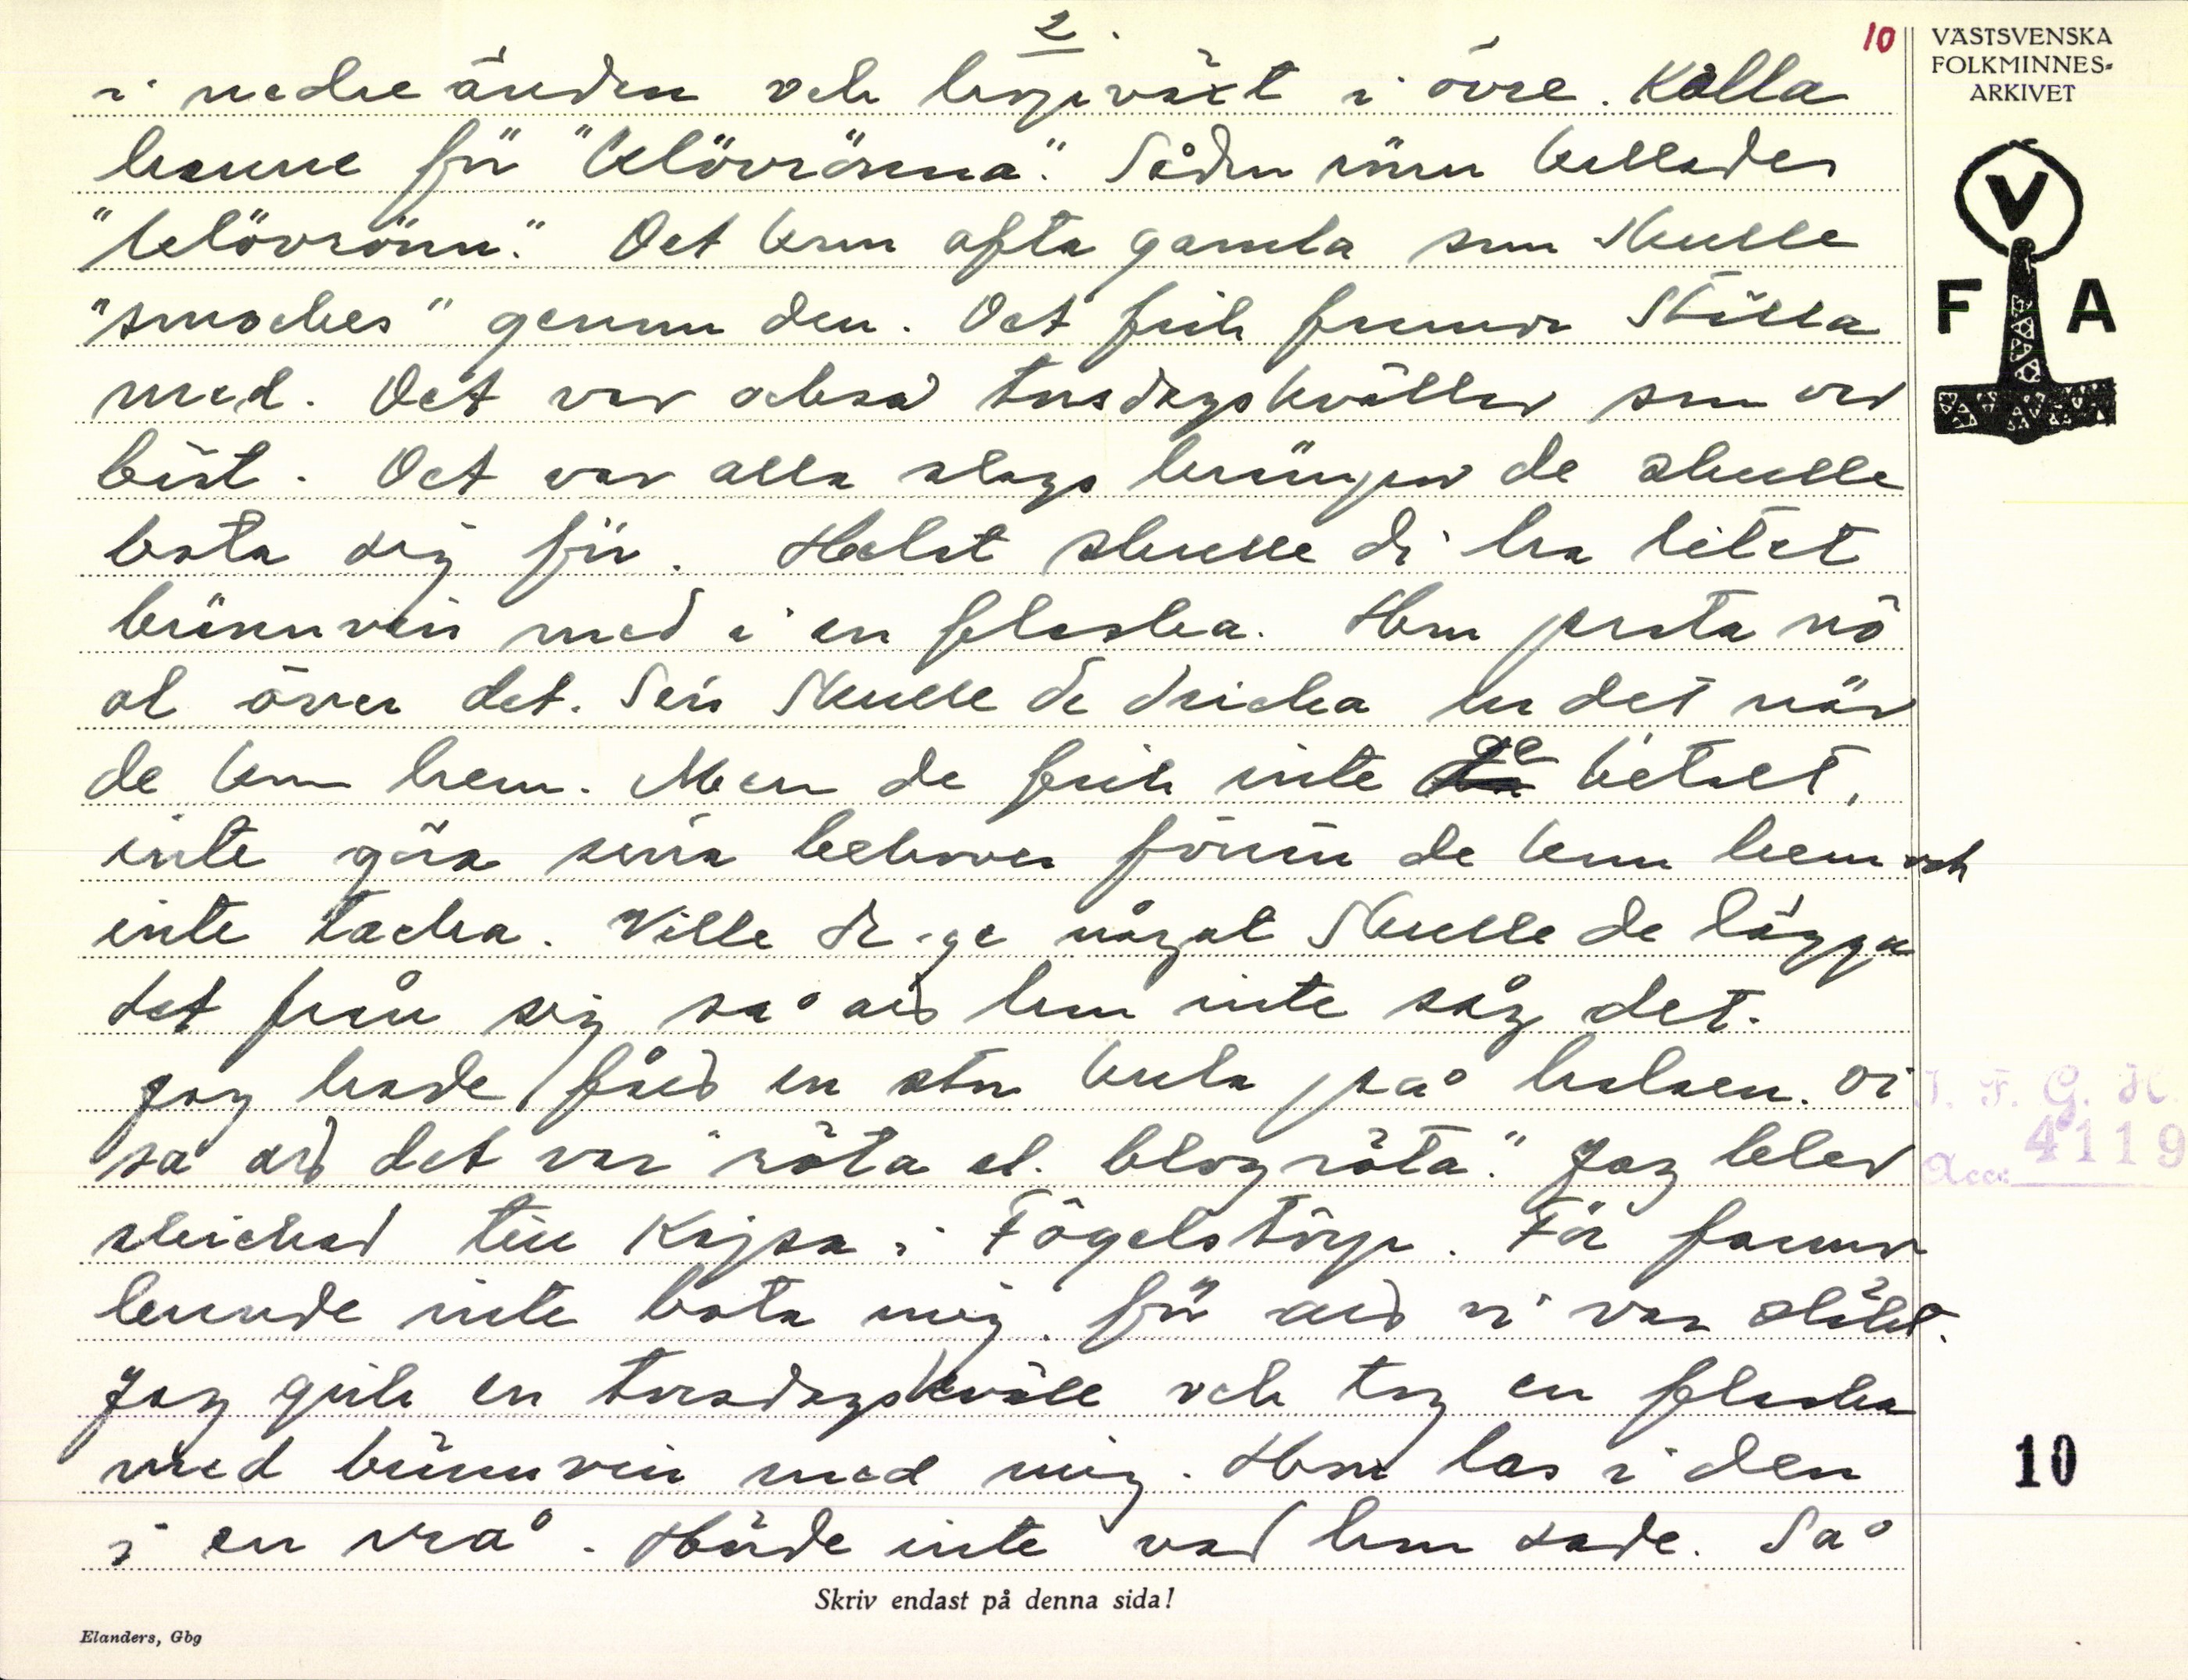 2.
10
VÄSTSVENSKA
FOLKMINNES-
ARKIVET
V
F A
i nedre änden och hopväxt i övre. Kalla
henne för "klövrönna". Såden rönn kallades
"klövrönn". Det kom ofta gamla som skulle
"smockes" genom den. Det fick farmor ställa
med. Det var också torsdagskvällar som var
bäst. Det var alla slags krämpor de skulle
bota sig för. Helst skulle di ha litet
brännvin med i en flaska. Hon prata nô
ol över det. Sen skulle de dricka ur det när
de kom hem. Men de fick inte ge betalt,
inte göra sina behover förrän de kom hem och
inte tacka. Ville de ge något skulle de lägga
det från sig så att hon inte såg det.
Jag hade fått en stor kula på halsen. Di
sa att det var "röta el. blogröta". Jag blev
skickad till Kajsa i Fögelstorp. För farmor
kunde inte bota mig för att vi var släkt.
Jag gick en torsdagskväll och tog en flaska
med brännvin med mig. Hon las i den
i en vrå. Hörde inte vad hon sade. Så
I. F. G. H.
Acc. 4119
10
Skriv endast på denna sida!
Elanders, Gbg